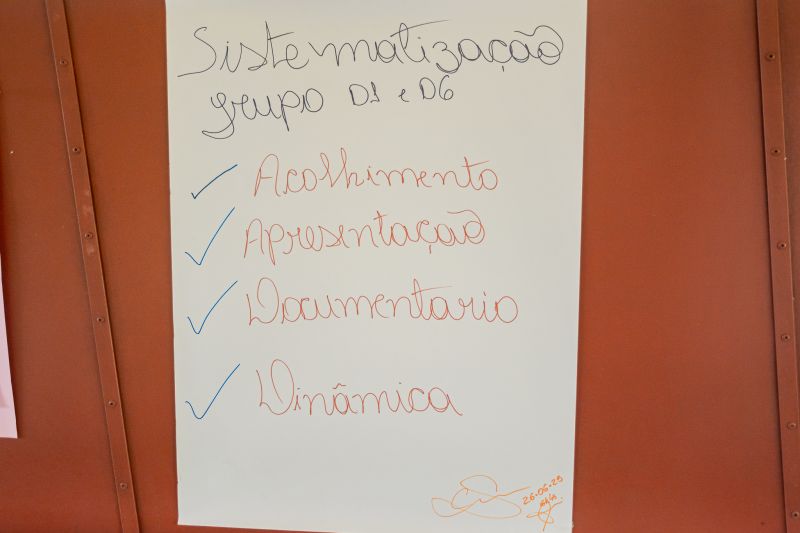 Sistematização
grupo D1 e D6
Acolhimento
Apresentação
Documentario
Dinâmica
26-06-25